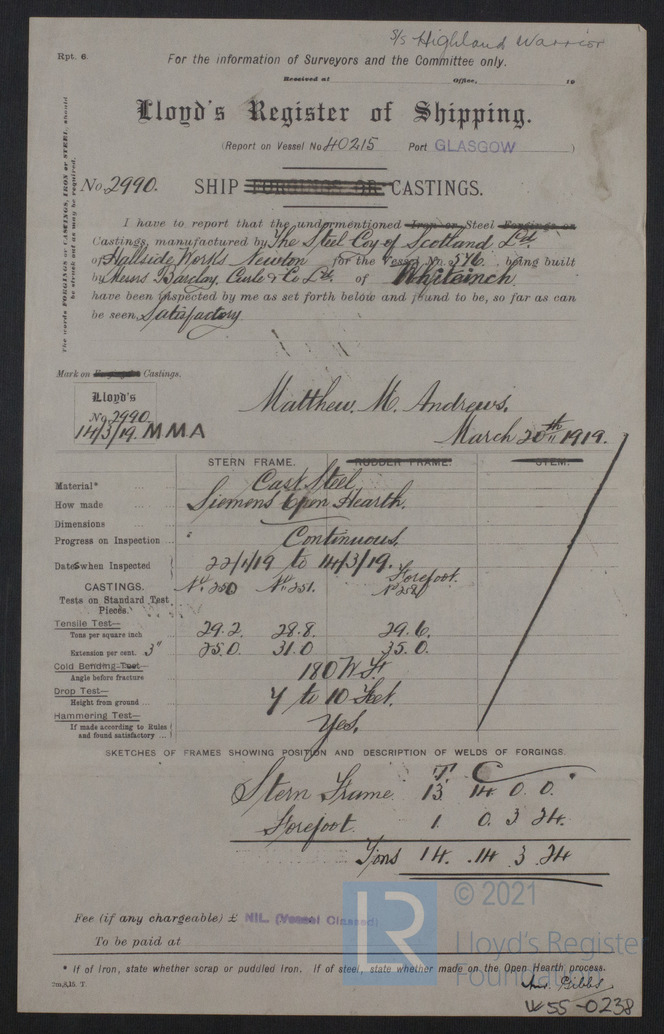 S/S Highland Warrior
Rpt. 6.
For the information of Surveyors and the Committee only.
Received at Office, 19
Lloyd's Register of Shipping.
(Report on Vessel No 40215 Port GLASGOW )
The words FORGINGS or CASTINGS, IRON or STEEL, should be struck out as may be required.
No. 2990. SHIP FORGINGS OR CASTINGS.
I have to report that the undermentioned Iron or Steel Forgings or
Castings, manufactured by The Steel Coy of Scotland Ltd.
of Hallside Works Newton for the Vessel No. 576 being built
by Messrs Barclay, Curle & Co Ltd. of Whiteinch
have been inspected by me as set forth below and found to be, so far as can
be seen, Satisfactory
Mark on Forgings or Castings.
Lloyd's
No. 2990
14/3/19. MMA
Matthew M. Andrews.
March 20th 1919.
STERN FRAME. RUDDER FRAME. STEM.
Material* Cast Steel
How made Siemens Open Hearth.
Dimensions
Progress on Inspection Continuous.
Dates when Inspected 22/1/19 to 14/3/19.
Forefoot.
CASTINGS. No. 250 No. 251. No 252
Tests on Standard Test
Pieces.
Tensile Test—
Tons per square inch 29.2. 28.8. 29.6.
Extension per cent. 3" 25.0. 31.0 35.0.
Cold Bending Test—
Angle before fracture 180
Drop Test—
Height from ground 7 to 10 Feet.
Hammering Test—
If made according to Rules
and found satisfactory Yes.
SKETCHES OF FRAMES SHOWING POSITION AND DESCRIPTION OF WELDS OF FORGINGS.
T. C
Stern Frame 13 14 0 0.
Forefoot. 1 0 3 24.
Tons 14. 14 3 24
Fee (if any chargeable) £ NIL. (Vessel Classed)
To be paid at
* If of Iron, state whether scrap or puddled iron. If of steel, state whether made on the Open Hearth process.
Gibbs
W55-0238
LR
© 2021
Lloyd's Register
Foundation